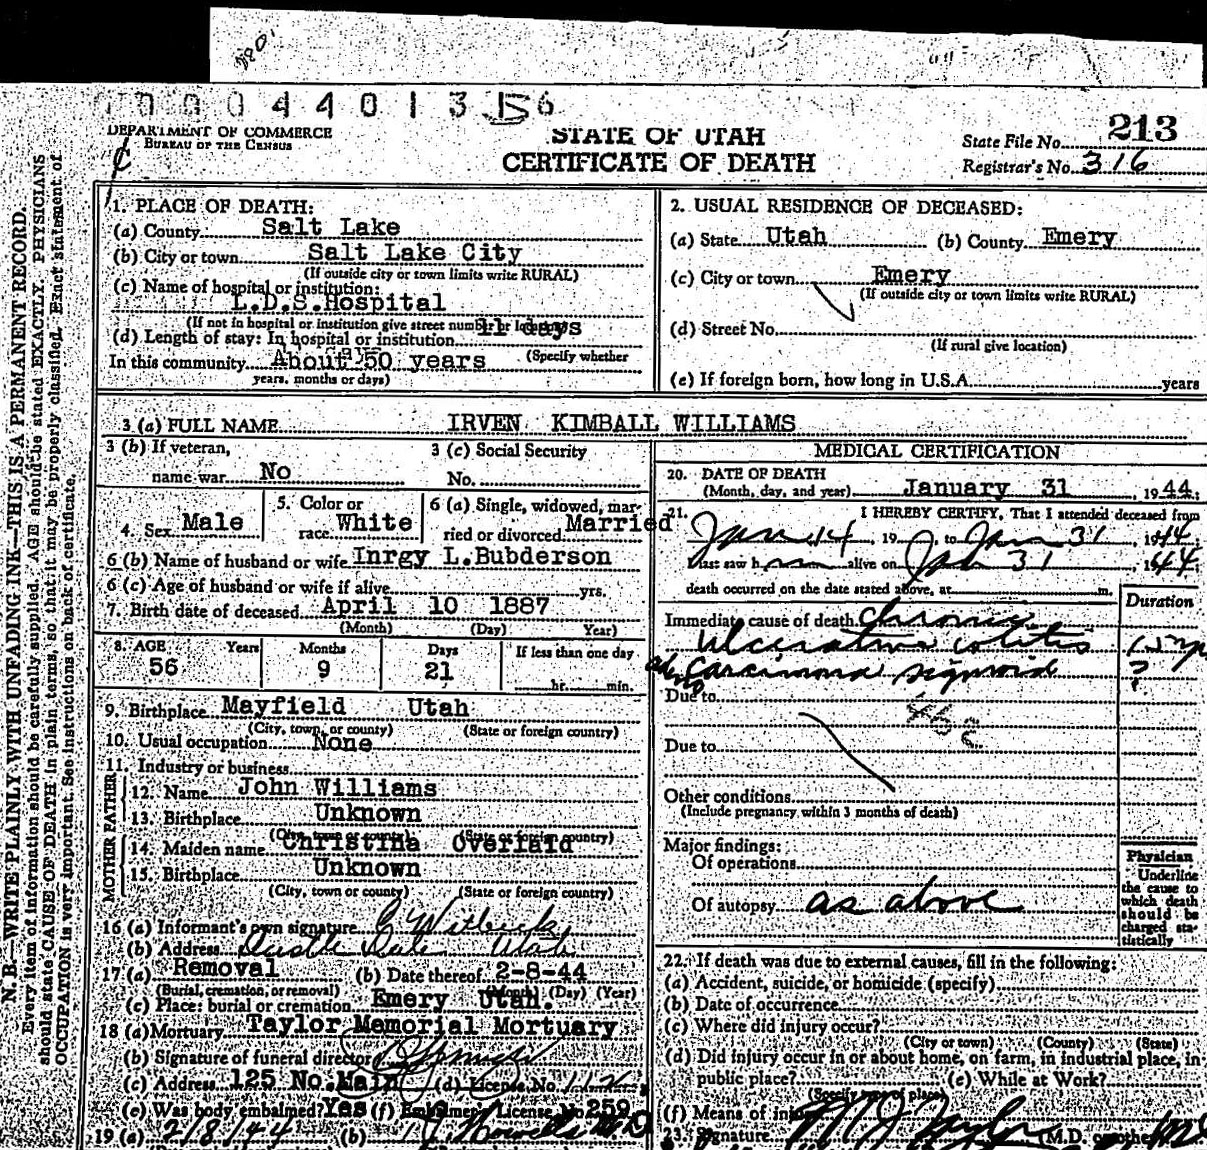 0 0 0 4 4 0 1 3 156
DEPARTMENT OF COMMERCE
BUREAU OF THE CENSUS
STATE OF UTAH
CERTIFICATE OF DEATH
State File No. 213
Registrar's No. 316
N. B.—WRITE PLAINLY WITH UNFADING INK—THIS IS A PERMANENT RECORD.
Every item of information should be carefully supplied. AGE should be stated EXACTLY. PHYSICIANS
should state CAUSE OF DEATH in plain terms, so that it may be properly classified. Exact statement of
OCCUPATION is very important. See instructions on back of certificate.
1. PLACE OF DEATH:
(a) County Salt Lake
(b) City or town Salt Lake City
(If outside city or town limits write RURAL)
(c) Name of hospital or institution:
L.D.S.Hospital
(If not in hospital or institution give street number or location)
(d) Length of stay: In hospital or institution 11 days
(Specify whether
In this community About 50 years
years, months or days)
2. USUAL RESIDENCE OF DECEASED:
(a) State Utah (b) County Emery
(c) City or town Emery
(If outside city or town limits write RURAL)
(d) Street No.
(If rural give location)
(e) If foreign born, how long in U.S.A. years
3 (a) FULL NAME IRVEN KIMBALL WILLIAMS
3 (b) If veteran, 3 (c) Social Security
name war No No.
4. Sex Male 5. Color or race White 6 (a) Single, widowed, married or divorced Married
6 (b) Name of husband or wife Inrgy L.Bubderson
6 (c) Age of husband or wife if alive yrs.
7. Birth date of deceased April 10 1887
(Month) (Day) Year)
8. AGE Years Months Days If less than one day
56 9 21 hr. min.
9. Birthplace Mayfield Utah
(City, town, or county) (State or foreign country)
10. Usual occupation None
11. Industry or business
FATHER
12. Name John Williams
13. Birthplace Unknown
(City, town or county) (State or foreign country)
MOTHER
14. Maiden name Christina Overlaid
15. Birthplace Unknown
(City, town or county) (State or foreign country)
16 (a) Informant's own signature
(b) Address Utah
17 (a) Removal (b) Date thereof 2-8-44
(Burial, cremation, or removal) (Month) (Day) (Year)
(c) Place: burial or cremation Emery Utah.
18 (a) Mortuary Taylor Memorial Mortuary
(b) Signature of funeral director
(c) Address 125 No.Main (d) License No.
(e) Was body embalmed? Yes (f) Embalmer's License No 259
19 (a) 2/8/44 (b)
MEDICAL CERTIFICATION
20. DATE OF DEATH
(Month, day, and year) January 31, 1944;
21. I HEREBY CERTIFY, That I attended deceased from
Jan 14, 19 , to Jan 31, 1944
last saw him alive on Jan 31, 1944
death occurred on the date stated above, at m.
Duration
Immediate cause of death chronic
ulcerative colitis
carcinoma sigmoid ?
Due to
Due to
Other conditions
(Include pregnancy within 3 months of death)
Major findings:
Of operations
Of autopsy as above
Physician
Underline
the cause to
which death
should be
charged sta-
tistically
22. If death was due to external causes, fill in the following:
(a) Accident, suicide, or homicide (specify)
(b) Date of occurrence
(c) Where did injury occur?
(City or town) (County) (State)
(d) Did injury occur in or about home, on farm, in industrial place, in
public place? (e) While at Work?
(Specify type of place)
(f) Means of injury
23. Signature (M.D. or other)